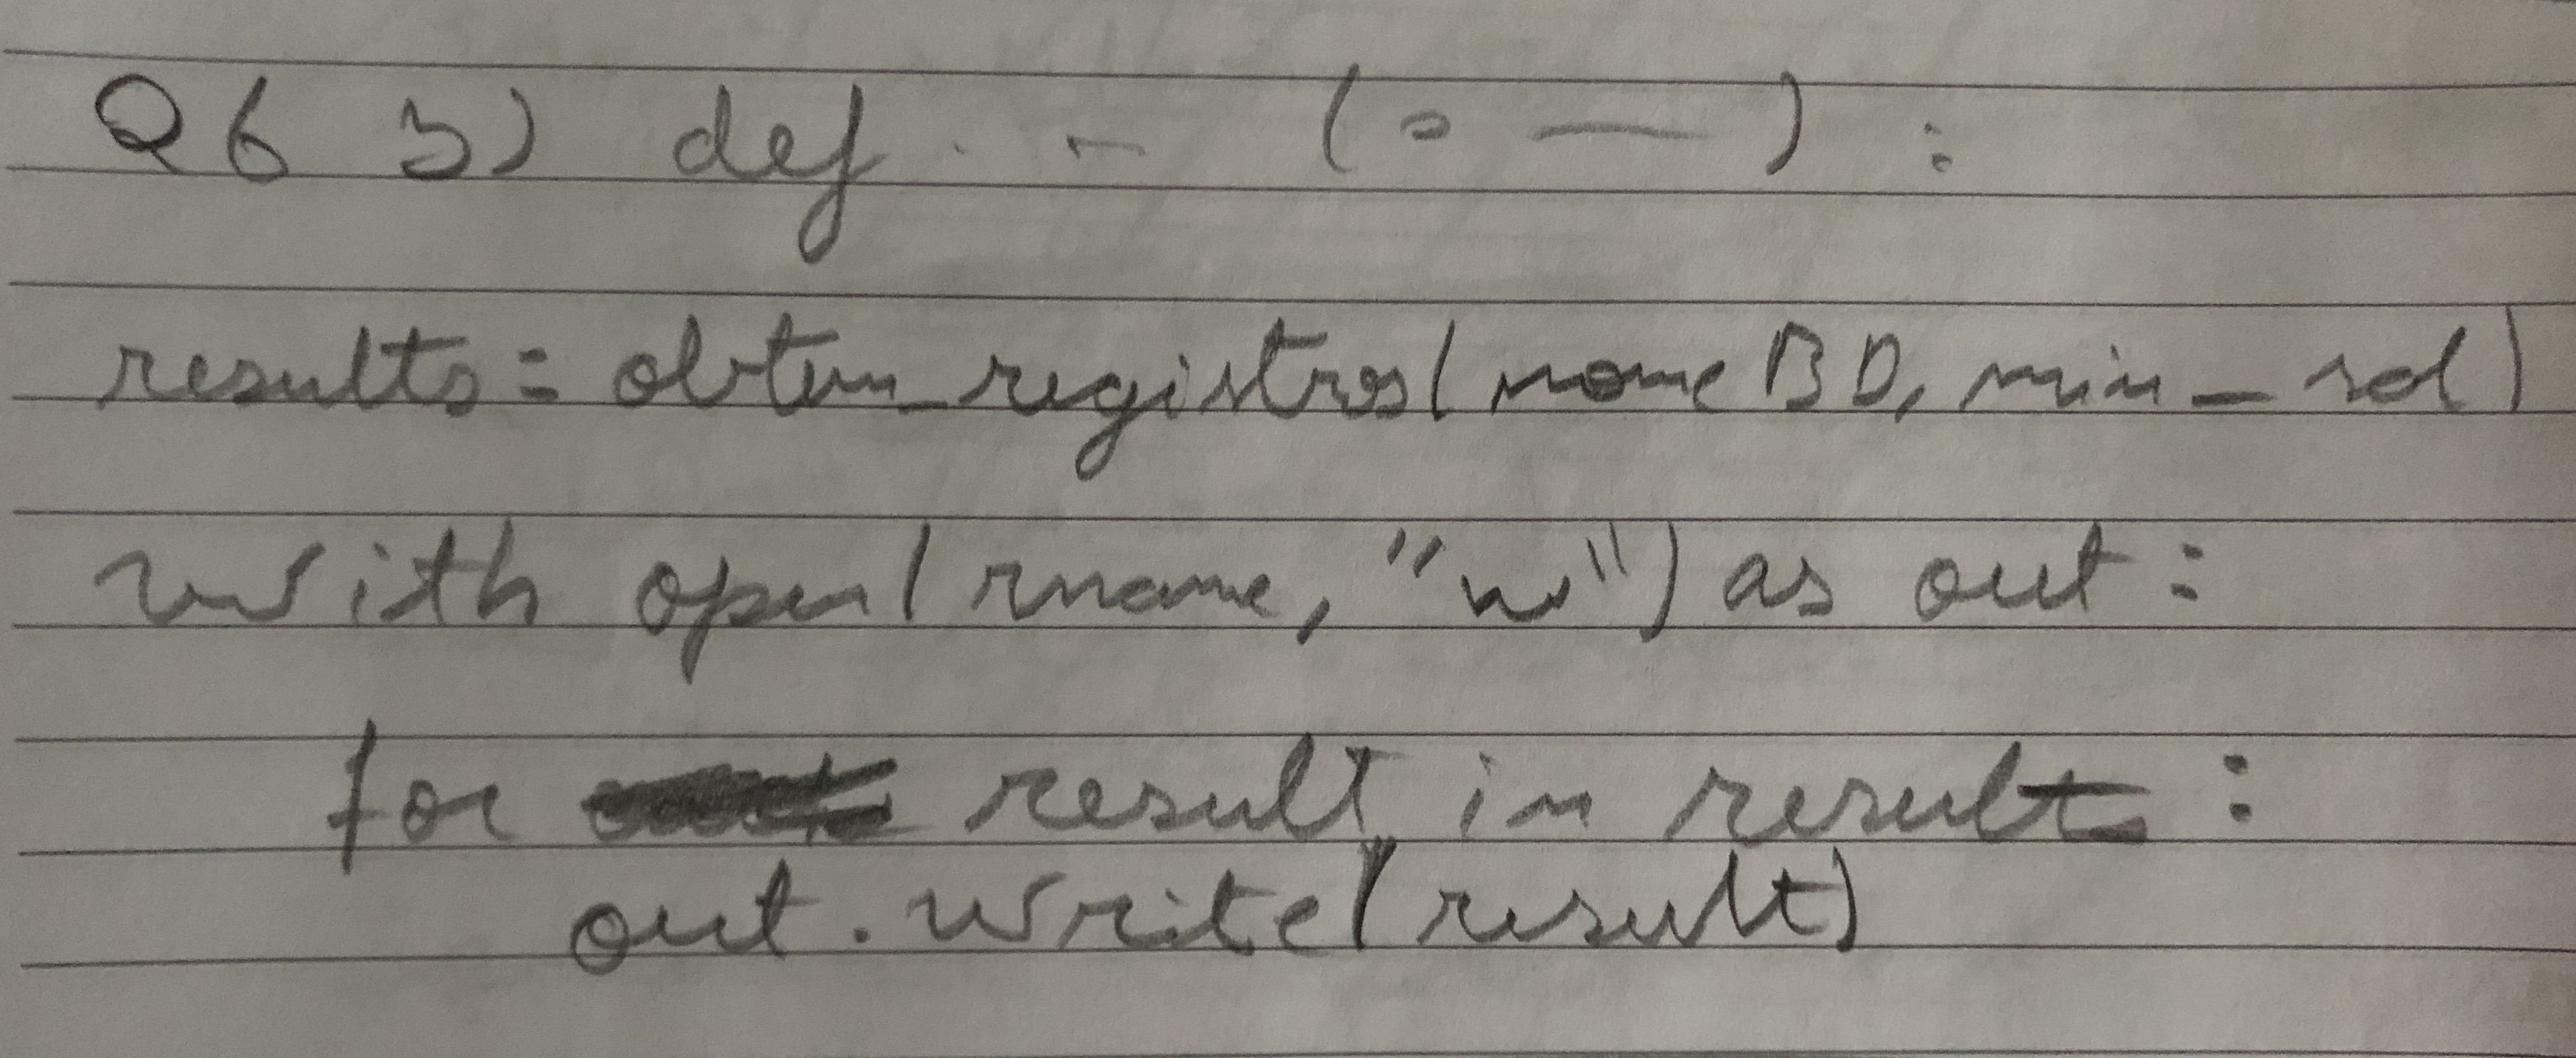 Q6 3) def - - (= —) :
results = obtem_registros(nomeBD, min_sol)
with open(rname, "w") as out :
for result in results :
out.write(result)